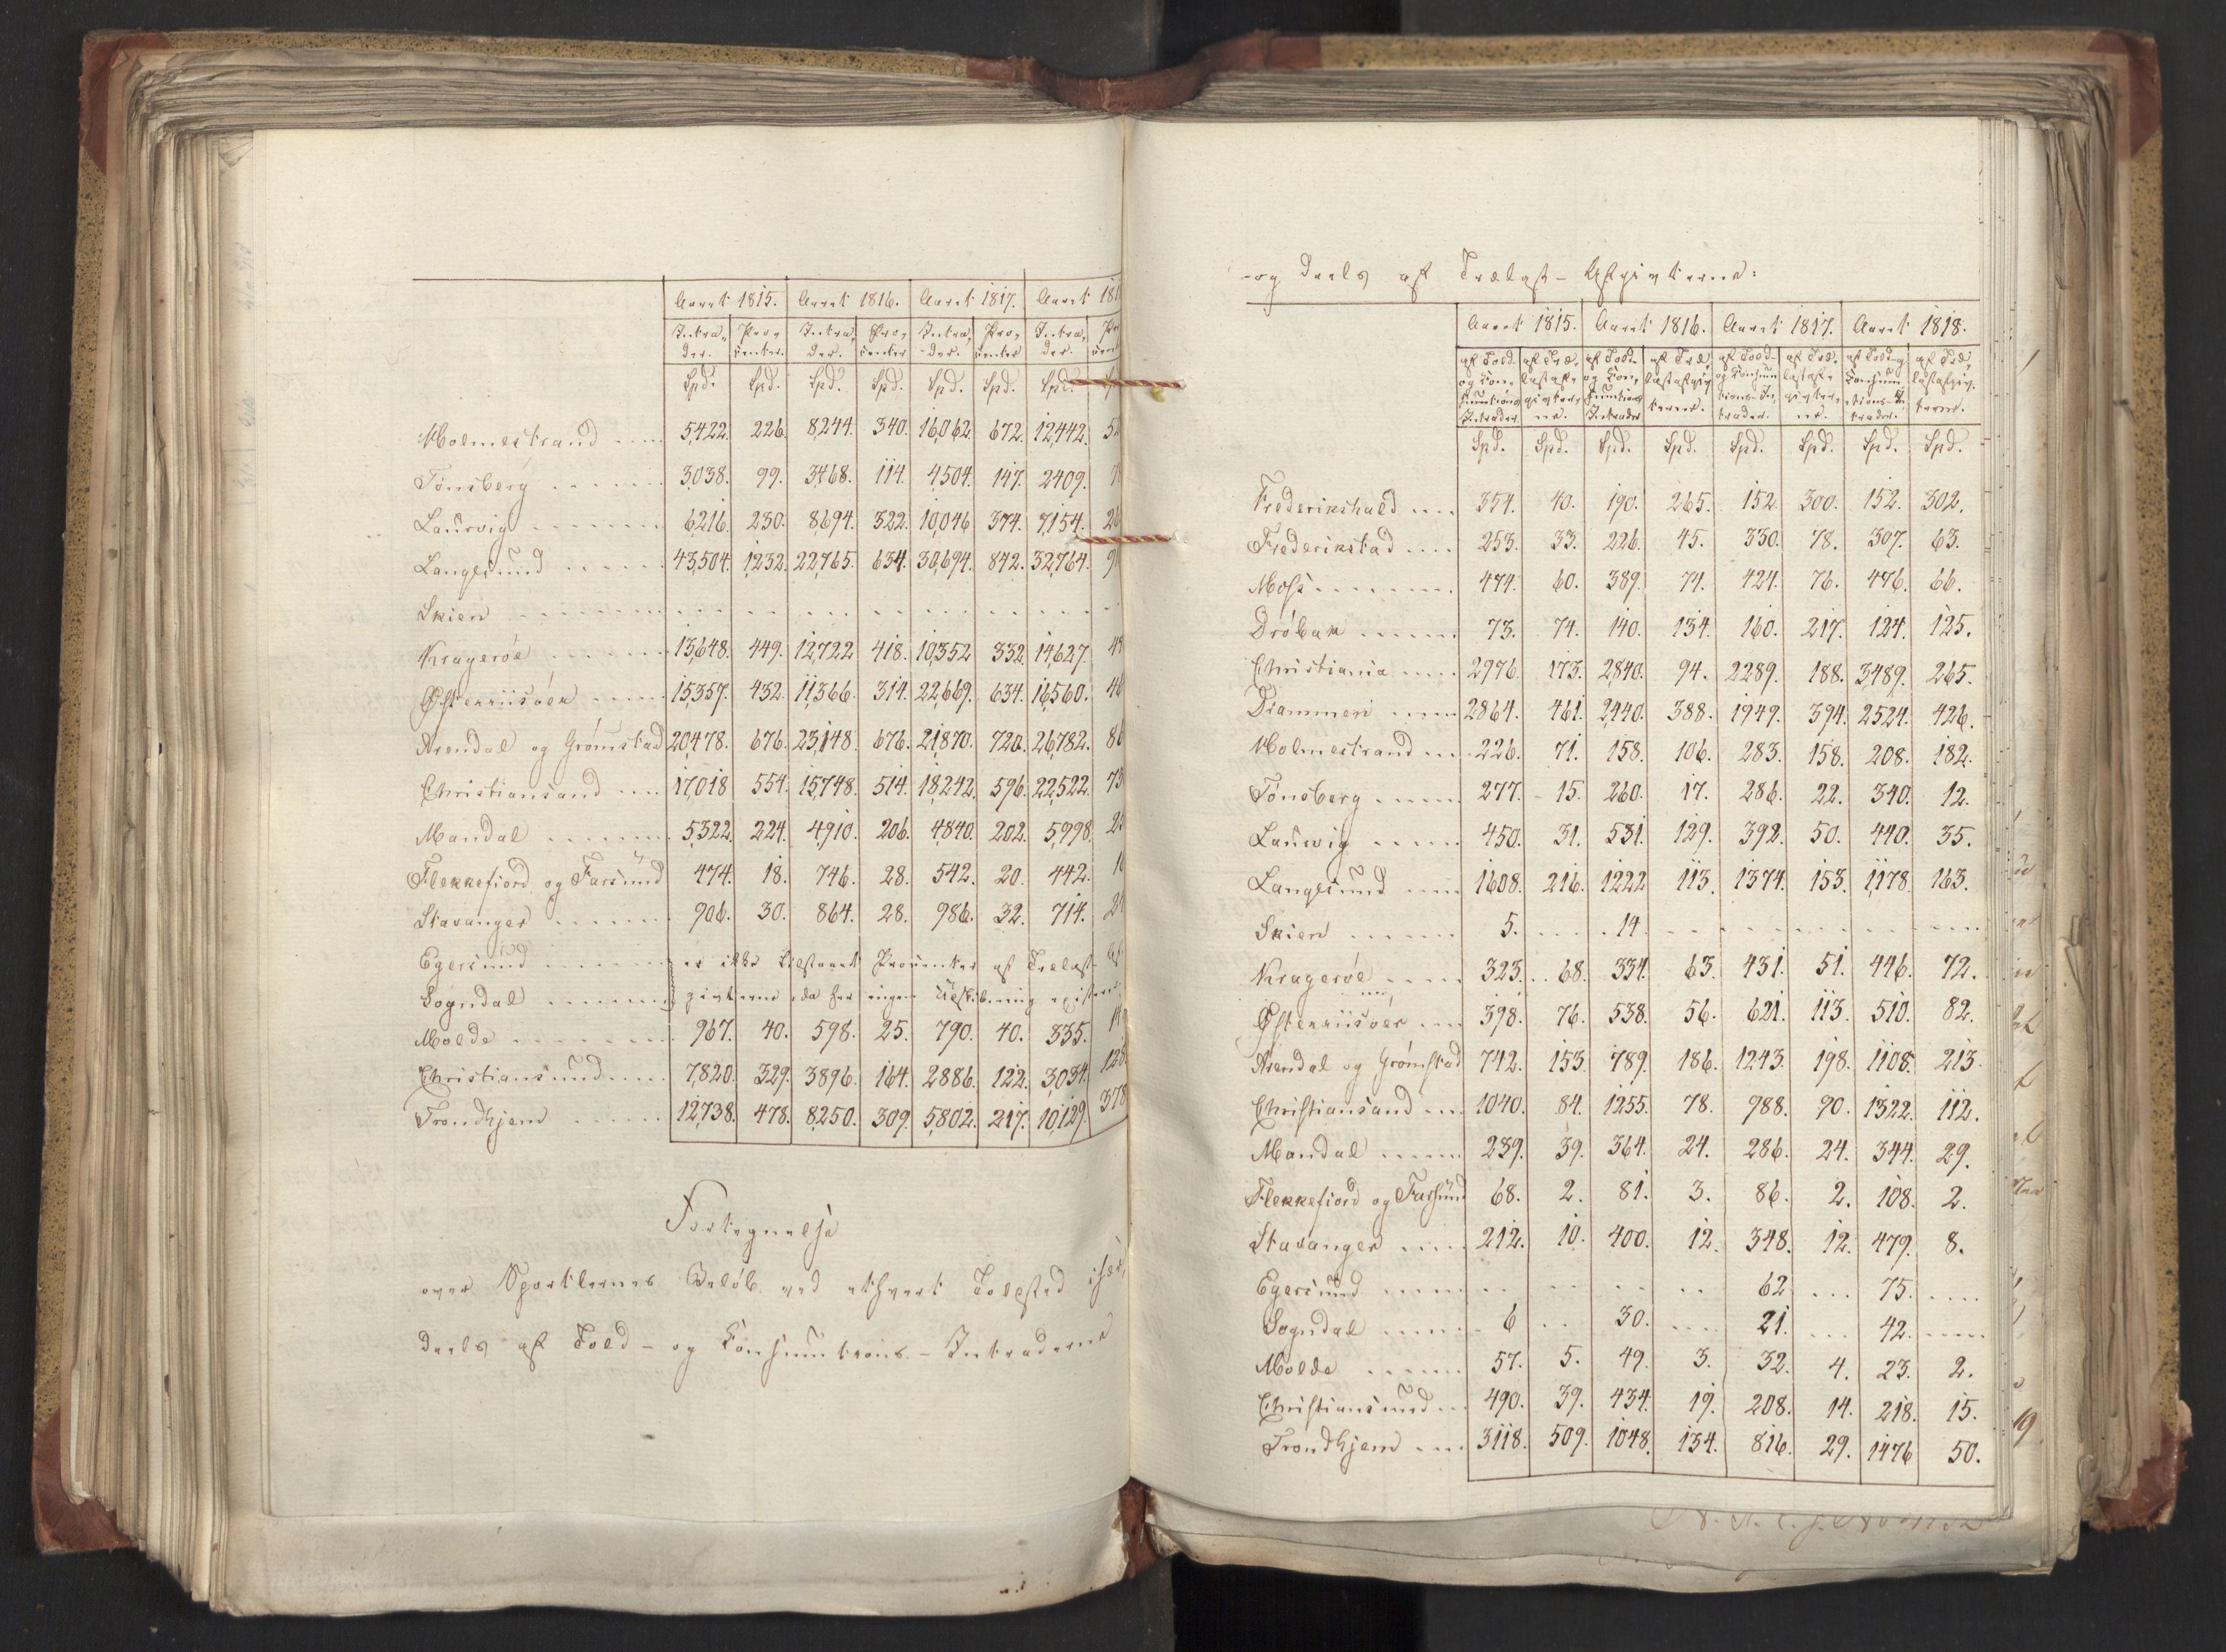 Aaret 1815. Aaret 1816. Aaret 1817. Aaret 181
Intra- Pro- Intra- Pro- Intra- Pro- Intra-
der. center. der. center der. center der.
Spd. Spd. Spd. Spd. Spd. Spd. Spd.
Holmestrand 5,422. 226. 8,244. 340. 16,062. 672. 12,442. 52
Tønsberg 3,038. 99. 3,468. 114. 4504. 147. 2409. 7
Laurvig 6,216. 230. 8,694. 322. 10,046 374. 7,154. 26
Langesund 43,504. 1,232. 22,765. 634. 30,694. 842. 32,764. 9
Skien
Kragerøe 13,648. 449. 12,722 418. 10,352 332. 14,627. 4
Østerriisøer 15,357. 432. 11,366. 314. 22,669. 634. 16,560. 46
Arendal og Grømstad 20,478. 676. 23,148. 676. 21,870. 720. 26,782. 8
Christiansand 17,018 554. 15,748. 514. 18,242. 596. 22,522. 73
Mandal 5,322. 224. 4,910. 206. 4,840. 202. 5,998. 2
Flekkefiord og Farsund 474. 18. 746. 28. 542. 20. 442. 1
Stavanger 906. 30. 864. 28. 986. 32. 714. 2
Egersund er ikke tilstaaet Procenter af Trælast-
Sogndal givterne, da her ingen Udskibning
Molde 967. 40. 598. 25. 790. 40. 335.
Christiansund 7,820. 329. 3896. 164. 2886. 122. 3,034. 128
Trondhjem 12,738. 478. 8,250. 309. 5,802. 217. 10,129. 378
Fortegnelse
over Sportlernes Beløb ved ethvert Toldsted især,
deels af Told- og Consumtions-Intraderne
-og deels af Trælast-Afgivterne:
Aaret 1815. Aaret 1816. Aaret 1817. Aaret 1818.
af Told- af Træ- af Told- af Træ- af Told- af Træ- af Told-og af Træ-
og Con- lastaf- og Con- lastafgiv- og Consum- lastaf- Consum- lastafgiv-
sumtions givter- sumtions terne. tions-In- givter- tions-In- terne.
Intrader ne. Intrader trader. ne. trader.
Spd. Spd. Spd. Spd. Spd. Spd. Spd. Spd.
Frederikshald 354. 40. 190. 265. 152. 300. 152. 302.
Frederikstad 253. 33. 226. 45. 330. 78. 307. 63.
Moss 474. 60. 389. 74. 424. 76. 476. 66.
Drøbak 73. 74. 140. 134. 160. 217. 124. 125.
Christiania 2976. 173. 2,840. 94. 2289. 188. 3489. 265.
Drammen 2864. 461. 2,440. 388. 1949. 394. 2524. 426.
Holmestrand 226. 71. 158. 106. 283. 158. 208. 182.
Tønsberg 277. 15. 260. 17. 286. 22. 340. 12.
Laurvig 450. 31. 531. 129. 392. 50. 440. 35.
Langesund 1608. 216. 1222 113. 1374. 153. 1,178. 163.
Skien 5. 14.
Kragerøe 323. 68. 334. 63. 431. 51. 446. 72.
Østerriisøer 398. 76. 538. 56. 621. 113. 510. 82.
Arendal og Grømstad 742. 153. 789. 186. 1243. 198. 1108. 213.
Christiansand 1040. 84. 1255. 78. 988. 90. 1322. 112.
Mandal 239. 39. 364. 24. 286. 24. 344. 29.
Flekkefiord og Farsund 68. 2. 81. 3. 86. 2. 108. 2.
Stavanger 212. 10. 400. 12. 348. 12. 479. 8.
Egersund 62 75.
Sogndal 6 30. 21. 42.
Molde 57. 5. 49. 3. 32. 4. 23. 2.
Christiansund 490. 39. 434. 19. 208. 14. 218. 15.
Trondhjem 3118. 509. 1048. 134. 816. 29. 1476 50.